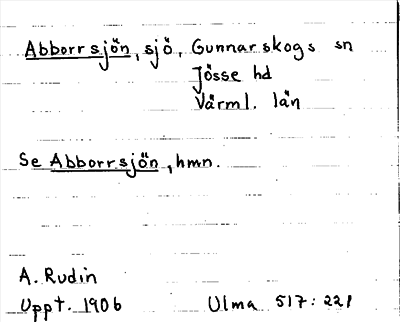 Abborrsjön, sjö, Gunnarskogs sn
Jösse hd
Värml. län
Se Abborrsjön, hmn.
A. Rudin
Uppt. 1906 Ulma 517:221